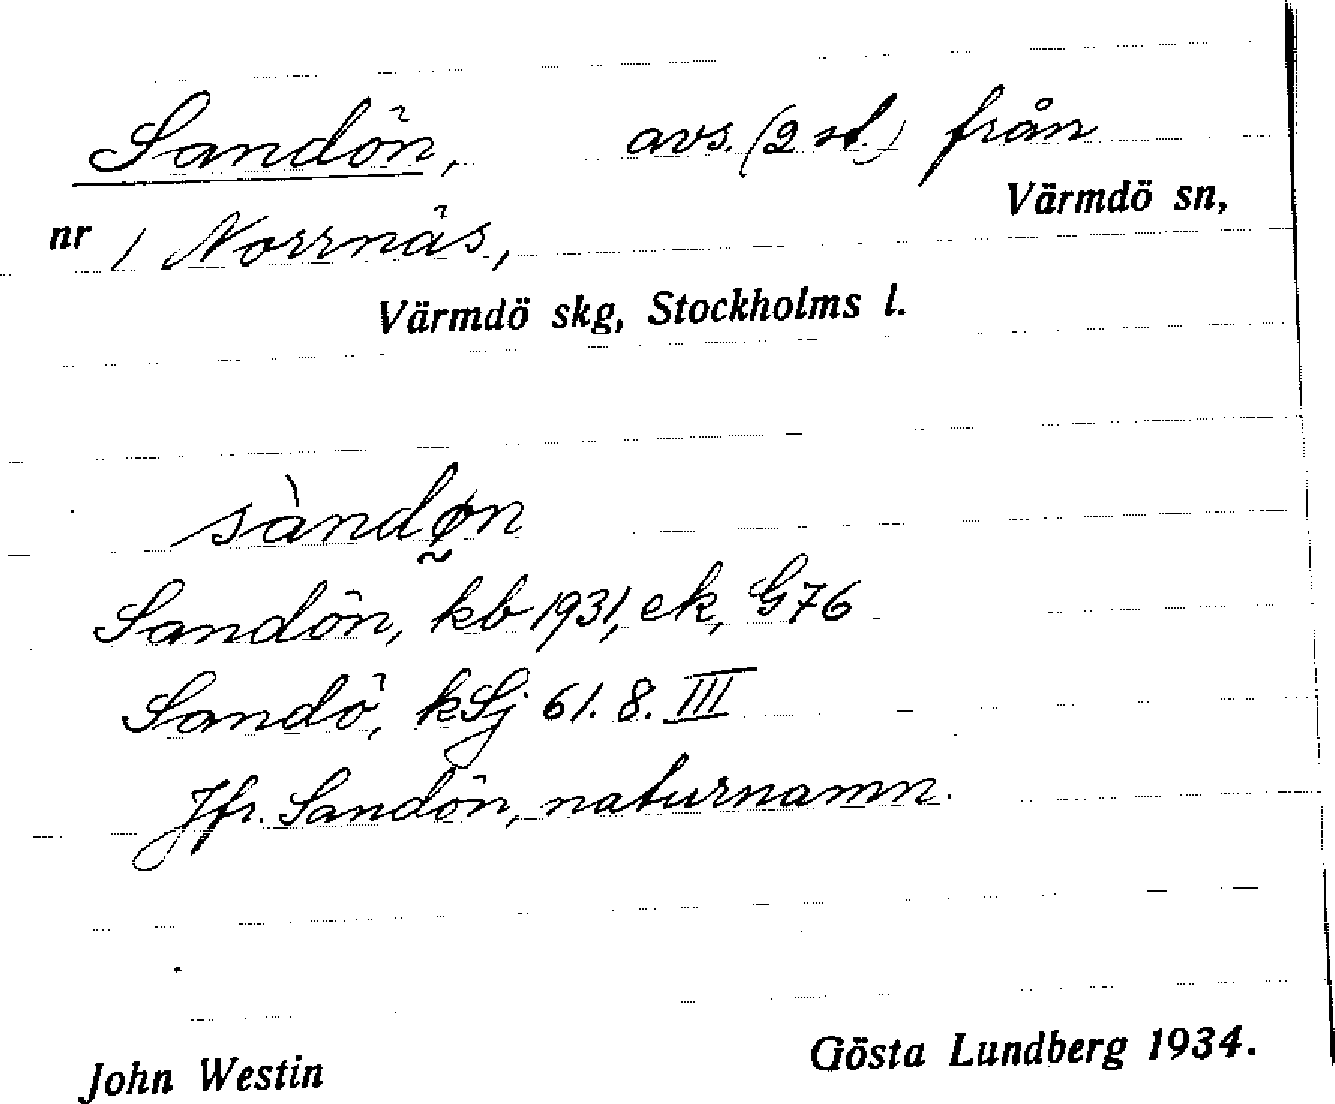 Sandön, avs. (2 st.) från
Värmdö sn,
nr 1 Norrnäs,
Värmdö skg, Stockholms l.
sàndø̰n
Sandön, kb 1931, ek, G76
Sandö, kSj 61. 8. III
Jfr. Sandön, naturnamn.
John Westin Gösta Lundberg 1934.